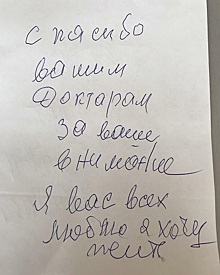 спасибо
вашим
Доктарам
за ваше
внимание
Я вас всех
люблю я хочу
пент